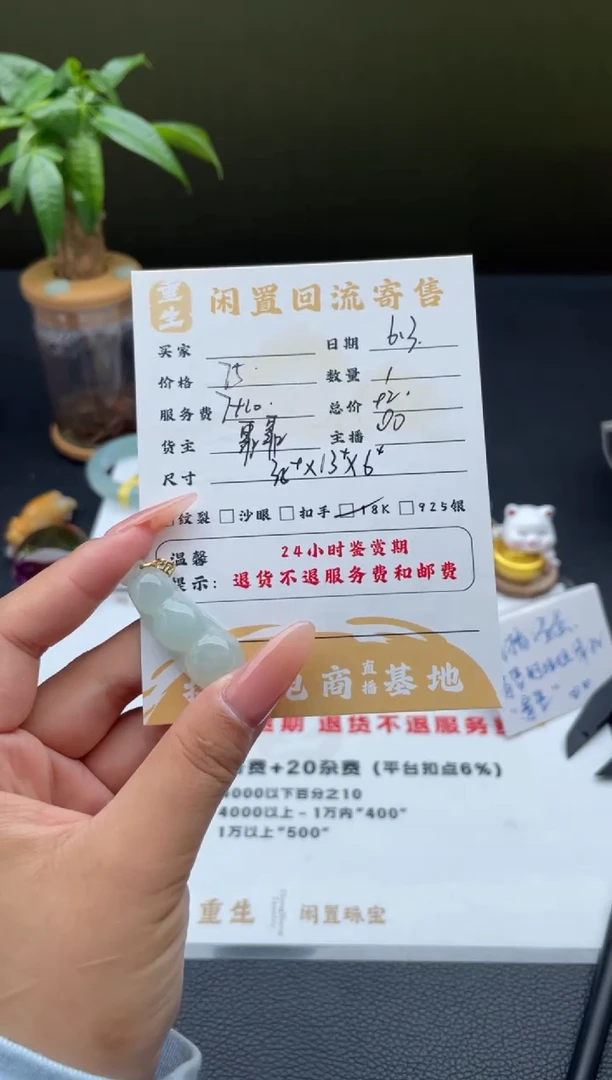 重生 闲置回流寄售
买家 日期 6.3.
价格 75. 数量 1
服务费 7+10. 总价 92.
货主 主播
尺寸 36+X13+X6+
纹裂 □沙眼 □扣手 □18K □925银
温馨 24小时鉴赏期
提示: 退货不退服务费和邮费
电商直播基地
退货不退服务费
费+20杂费 (平台扣点6%)
4000以下百分之10
4000以上-1万内"400"
1万以上"500"
重生 闲置珠宝